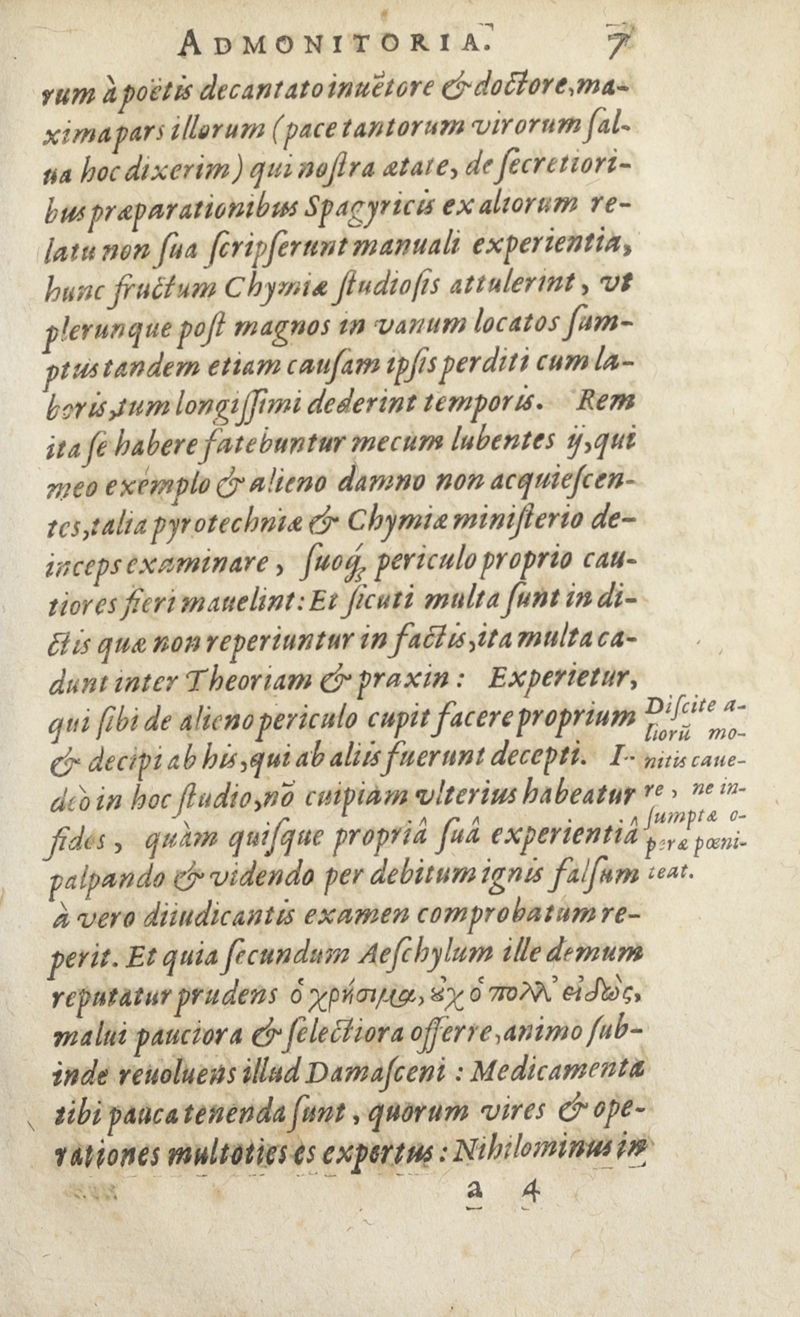 ADMONITORIA. 7
rum à poëtis decantato inuẽtore & doctore, ma-
xima pars illorum (pace tantorum virorum ſal-
ua hoc dixerim) qui noſtra ætate, de ſecretiori-
bus præparationibus Spagyricis ex aliorum re-
latu non ſua ſcripſerunt manuali experientia,
hunc fructum Chymiæ ſtudioſis attulerint, vt
plerunque poſt magnos in vanum locatos ſum-
ptus tandem etiam cauſam ipſis perditi cum la-
boris, tum longiſſimi dederint temporis. Rem
ita ſe habere fatebuntur mecum lubentes ij, qui
meo exemplo & alieno damno non acquieſcen-
tes, talia pyrotechniæ & Chymiæ miniſterio de-
inceps examinare, ſuoq́; periculo proprio cau-
tiores fieri mauelint: Et ſicuti multa ſunt in di-
ctis quæ non reperiuntur in factis, ita multa ca-
dunt inter Theoriam & praxin: Experietur,
qui ſibi de alieno periculo cupit facere proprium
& decipi ab his, qui ab aliis fuerunt decepti. I-
deò in hoc ſtudio, nõ cuipiam vlterius habeatur
fides, quàm quiſque propriâ ſuâ experientiâ
palpando & videndo per debitum ignis falſum
à vero diiudicantis examen comprobatum re-
perit. Et quia ſecundum Aeſchylum ille demum
reputatur prudens ὁ χρήσιμα, οὐχ ὁ πολλ' εἰδὼς,
malui pauciora & ſelectiora offerre, animo ſub-
inde reuoluens illud Damaſceni: Medicamenta
tibi pauca tenenda ſunt, quorum vires & ope-
rationes multoties es expertus: Nihilominus in
a 4
Diſcite a-
liorũ mo-
nitis caue-
re, ne in-
ſumptæ o-
peræ pœni-
teat.